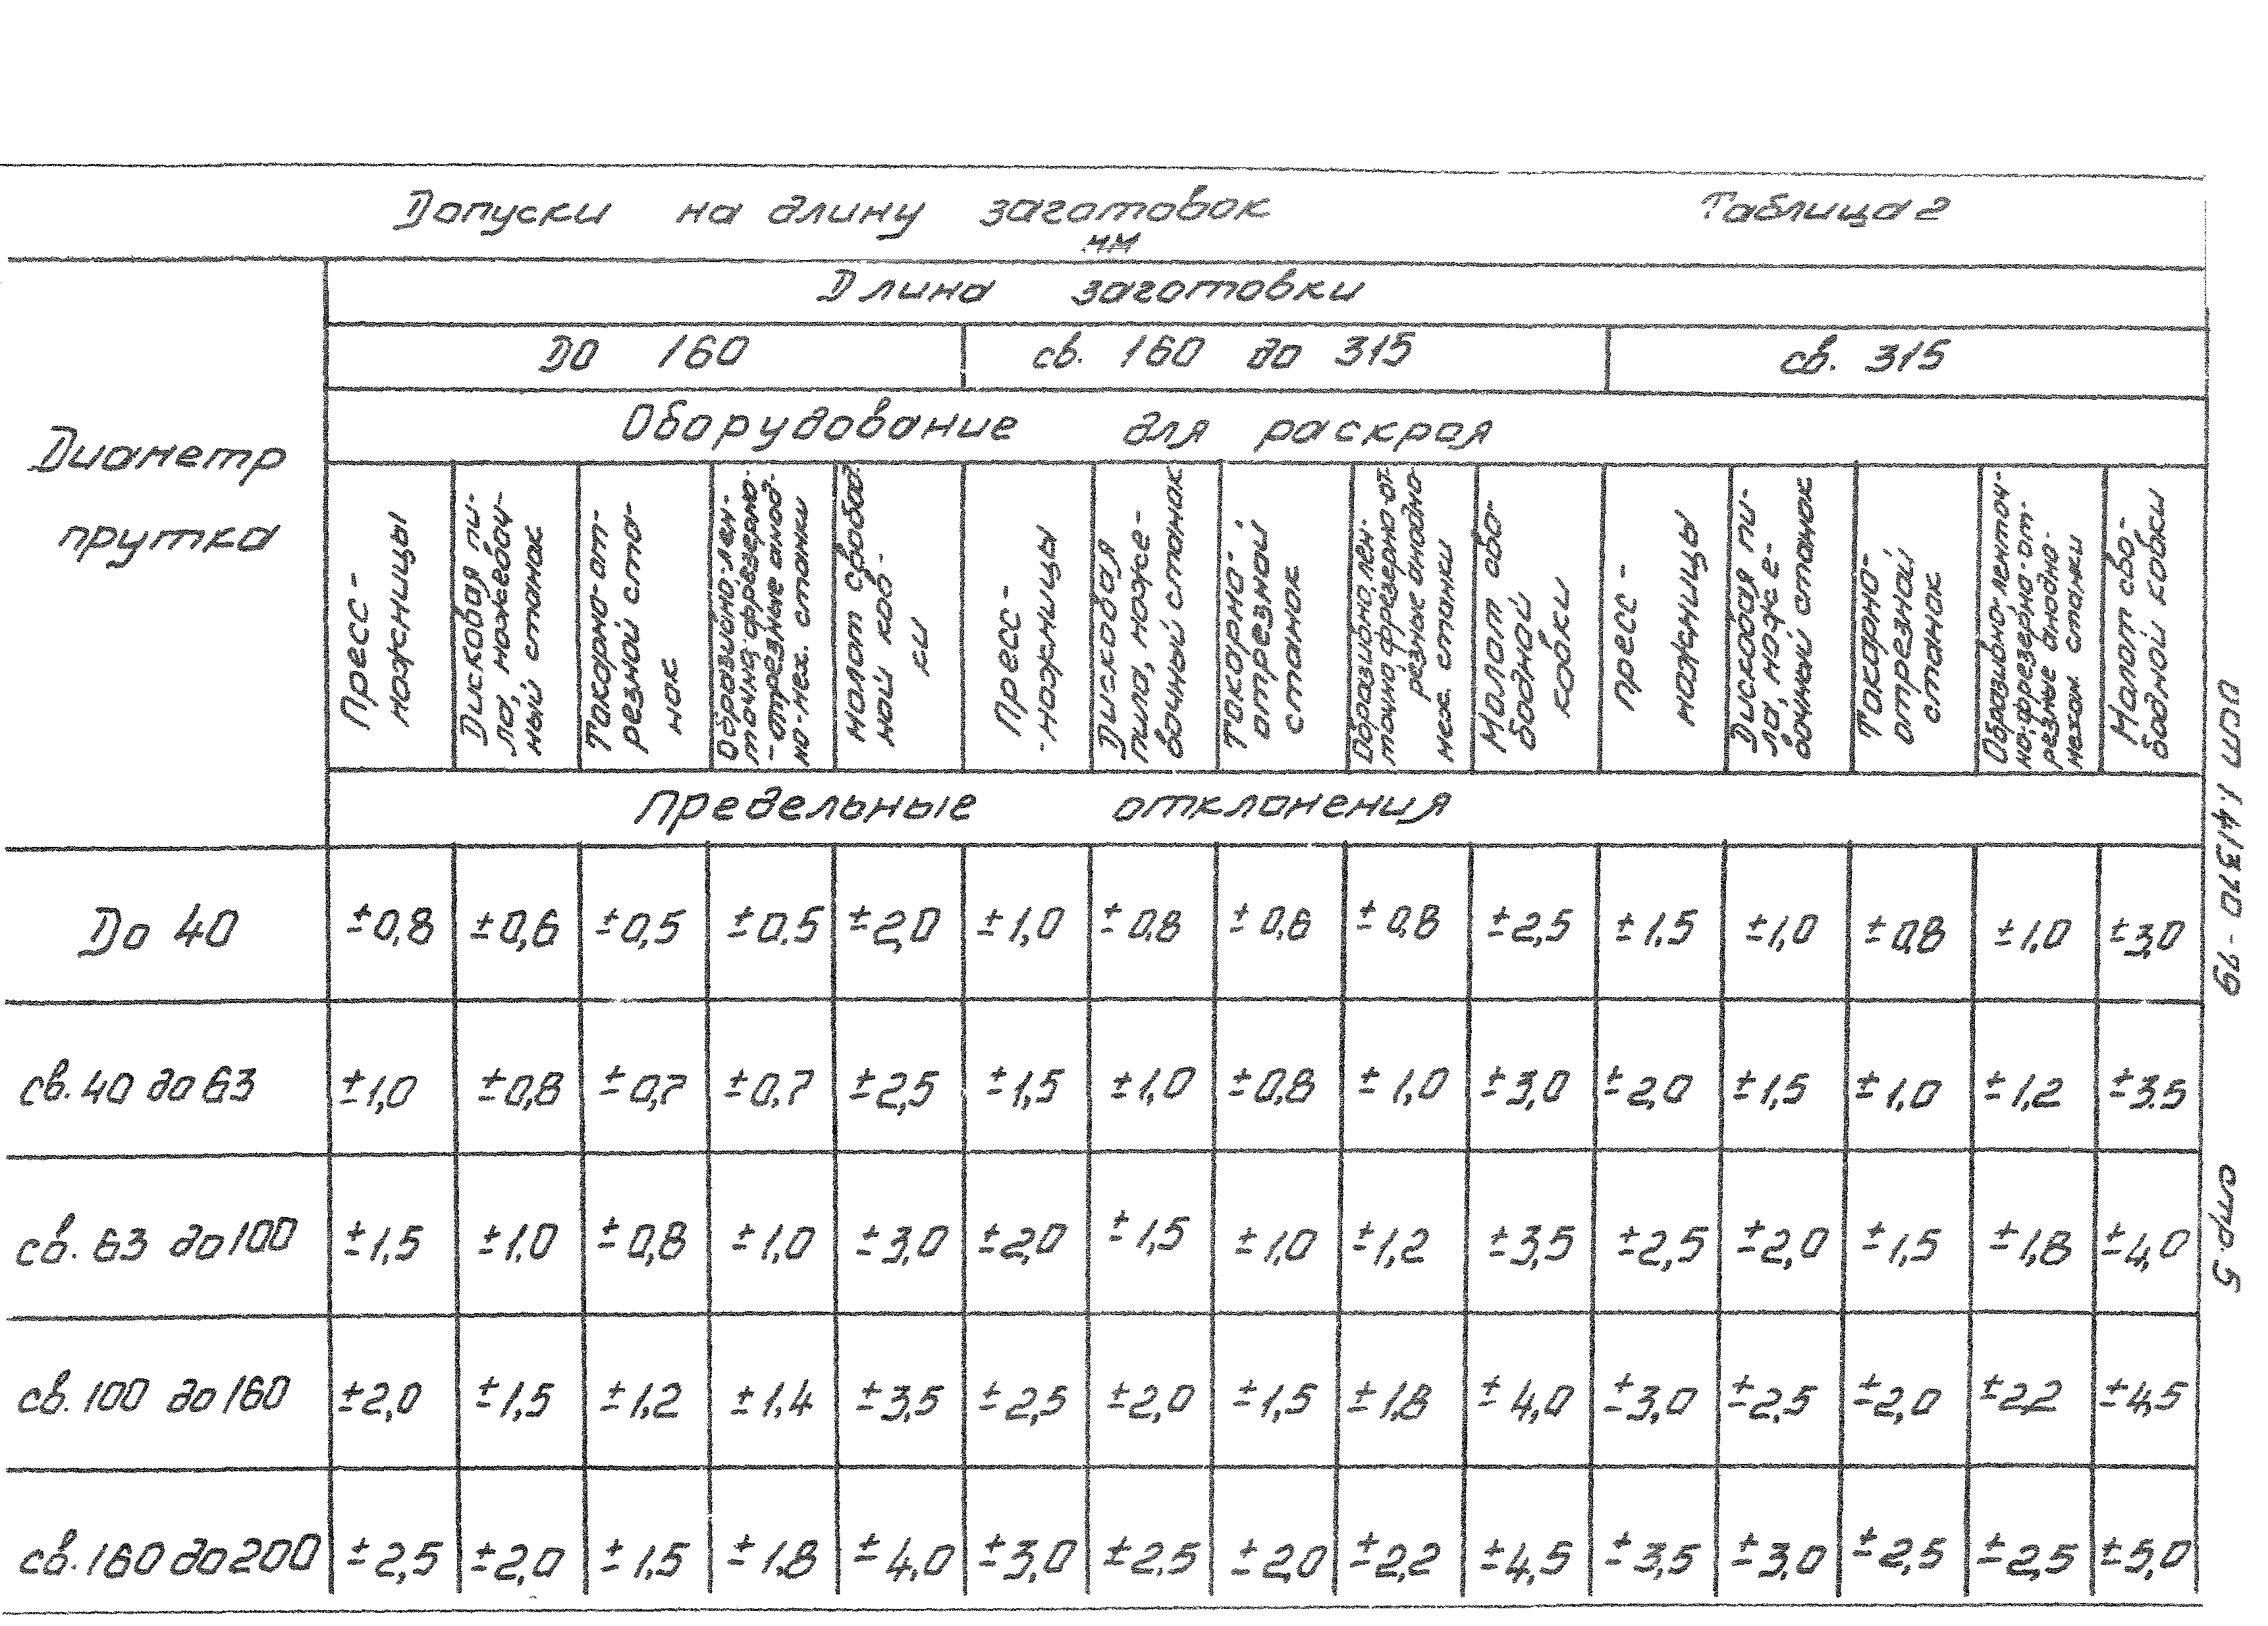 Допуски на длину заготовок Таблица 2
мм
Диаметр
прутка
Длина заготовки
до 160 св. 160 до 315 св. 315
Оборудование для раскроя
Пресс-
ножницы
Дисковая пи-
ла, ножевоч-
ный станок
Токарно-от-
резной ста-
нок
Образивно-лен-
точно, фрезерно-
-отрезные анод-
но-мех. станки
Молот свобод.
ной ков-
ки
Пресс-
-ножницы
Дисковая
пила, ноже-
вочный станок
Токарно-
отрезной
станок
Образивно, лен-
точно, фрезерно-от-
резные анодно-
мех. станки
Молот сво-
бодной
ковки
пресс-
ножницы
Дисковая пи-
ла, ноже-
вочный станок
Токарно-
отрезной
станок
Образивно-ленточ-
но, фрезерно-от-
резные анодно-
механ. станки
Молот сво-
бодной ковки
Предельные отклонения
До 40 ±0,8 ±0,6 ±0,5 ±0.5 ±2,0 ±1,0 ±0,8 ±0,6 ±0,8 ±2,5 ±1,5 ±1,0 ±0,8 ±1,0 ±3,0
св. 40 до 63 ±1,0 ±0,8 ±0,7 ±0,7 ±2,5 ±1,5 ±1,0 ±0,8 ±1,0 ±3,0 ±2,0 ±1,5 ±1,0 ±1,2 ±3.5
св. 63 до 100 ±1,5 ±1,0 ±0,8 ±1,0 ±3,0 ±2,0 ±1,5 ±1,0 ±1,2 ±3,5 ±2,5 ±2,0 ±1,5 ±1,8 ±4,0
св. 100 до 160 ±2,0 ±1,5 ±1,2 ±1,4 ±3,5 ±2,5 ±2,0 ±1,5 ±1,8 ±4,0 ±3,0 ±2,5 ±2,0 ±2,2 ±4,5
св. 160 до 200 ±2,5 ±2,0 ±1,5 ±1,8 ±4,0 ±3,0 ±2,5 ±2,0 ±2,2 ±4,5 ±3,5 ±3,0 ±2,5 ±2,5 ±5,0
ОСТ 1.41370-79 стр. 5